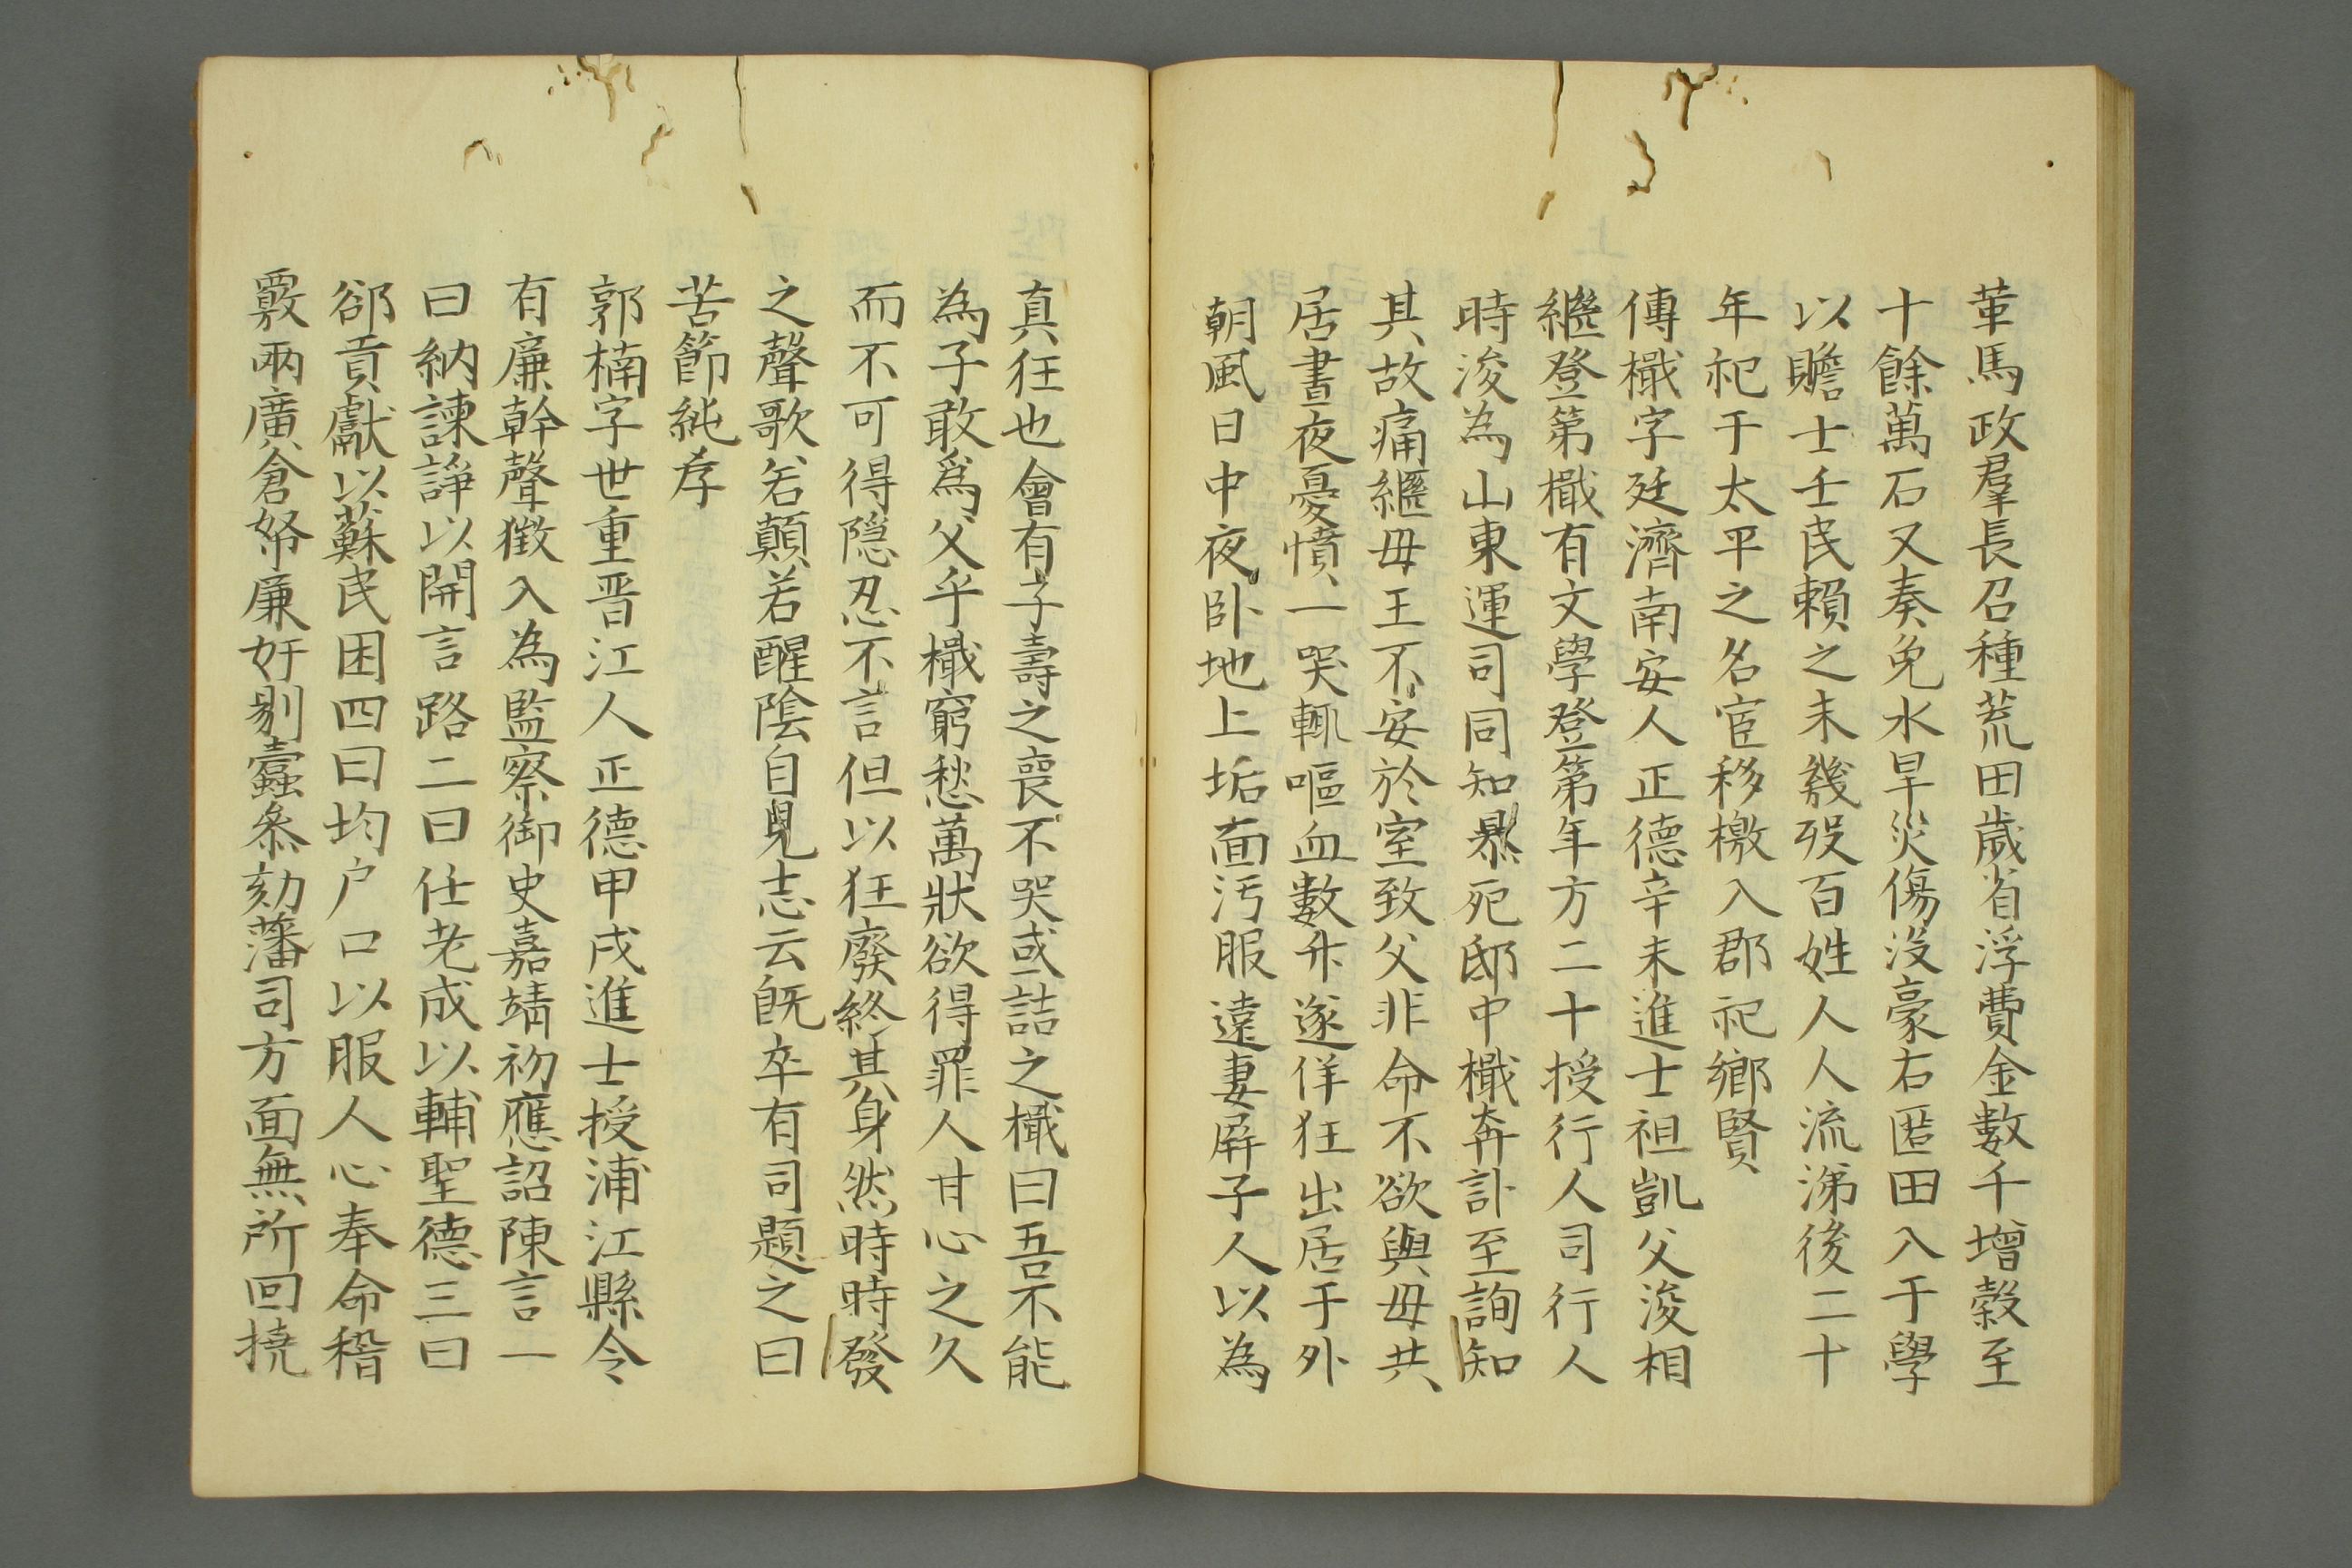 革馬政羣長召種荒田歲省浮費金數千增榖至
十餘萬石又奏免水旱災傷没豪右匿田入于學
以贍士壬民賴之未幾歿百姓人人流涕後二十
年祀于太平之名宦移檄入郡祀鄉賢
傳檝字廷濟南安人正德辛未進士祖凱父浚相
繼登第檝有文學登第年方二十授行人司行人
時浚為山東運司同知暴死邸中檝奔訃至詢知
其故痛繼毋王不安於室致父非命不欲與毋共
居晝夜憂憤一哭輒嘔血數升遂佯狂出居于外
朝風日中夜卧地上垢面汚服遠妻屏子人以為
真狂也會有子壽之喪不哭或詰之檝曰吾不能
為子敢爲父乎檝窮愁萬狀欲得罪人甘心之久
而不可得隱忍不言但以狂廢終其身然時時發
之聲歌若顛若醒隂自見志云旣卒有司題之曰
苦節純孝
郭楠字世重晋江人正德甲戌進士授浦江縣令
有廉幹聲徵入為監察御史嘉靖初應詔陳言一
曰納諫諍以開言路二曰任老成以輔聖德三曰
郤貢獻以蘇民困四曰均户口以服人心奉命稽
覈兩廣倉帑廉奸剔蠹叅劾藩司方面無所回撓